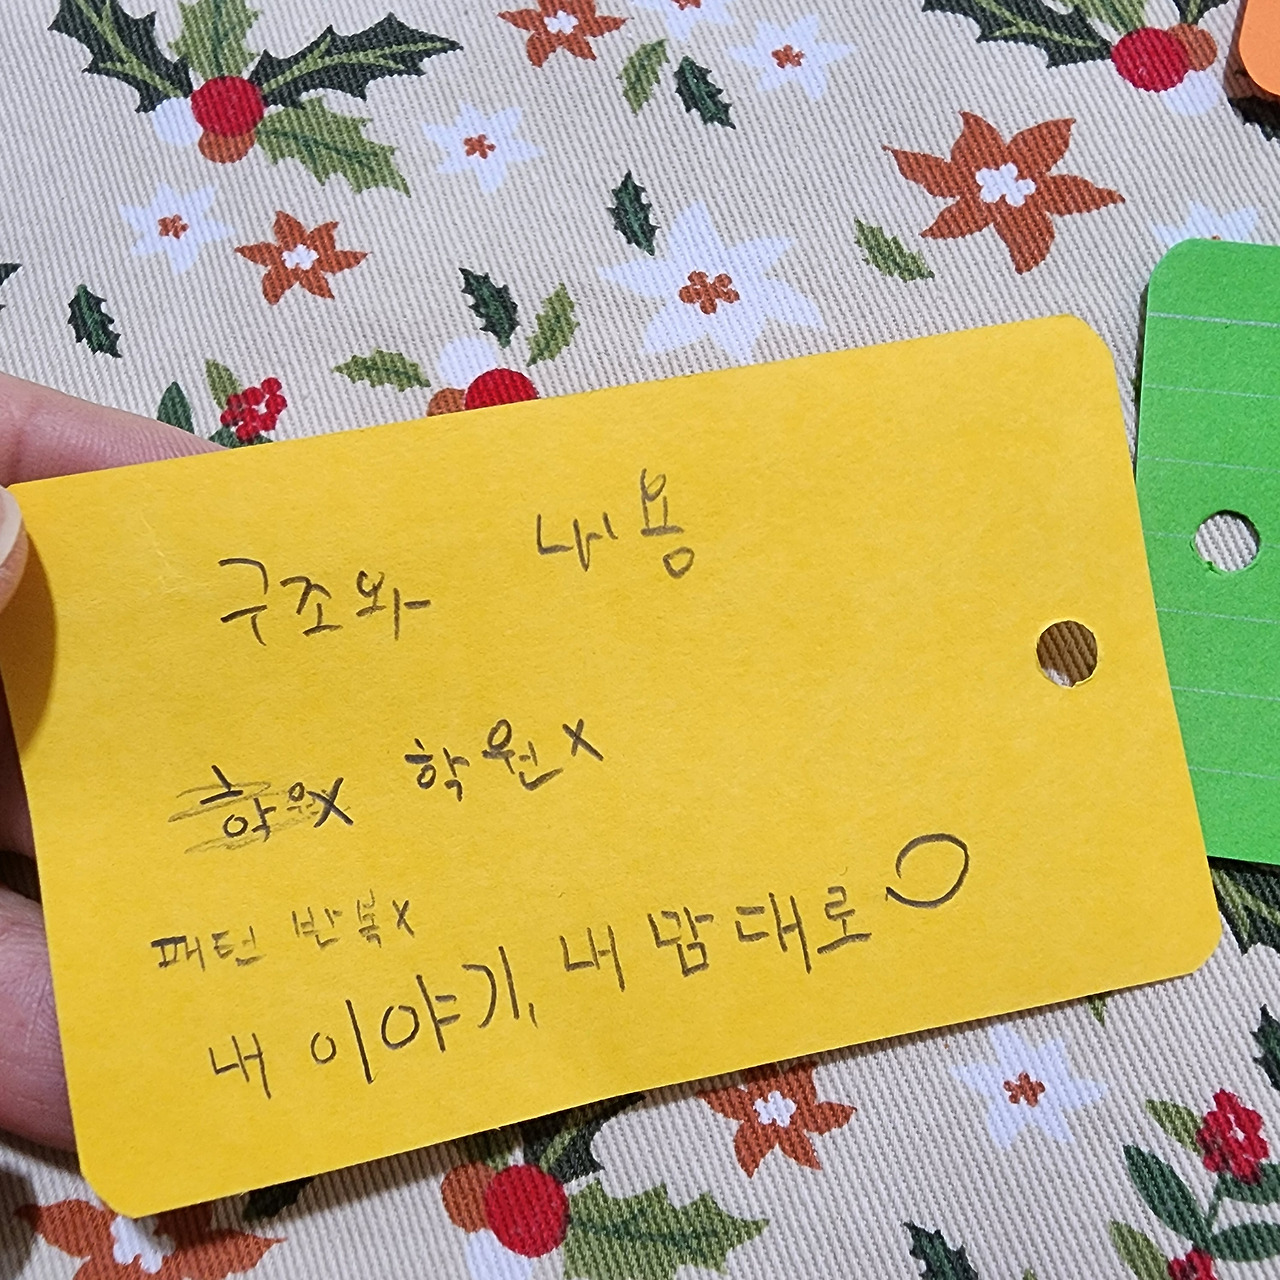 구조와 내용
학원X 학원X
패턴 반복X
내 이야기, 내 맘대로 O